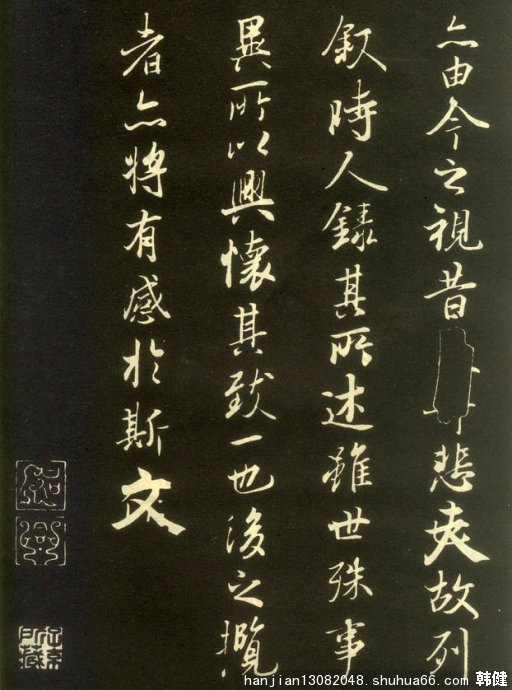 亦由今之視昔悲夫故列
敘時人錄其所述雖世殊事
異所以興懷其致一也後之攬
者亦將有感於斯文
紹
興
hanjian13082048. shuhua66.com 韩健